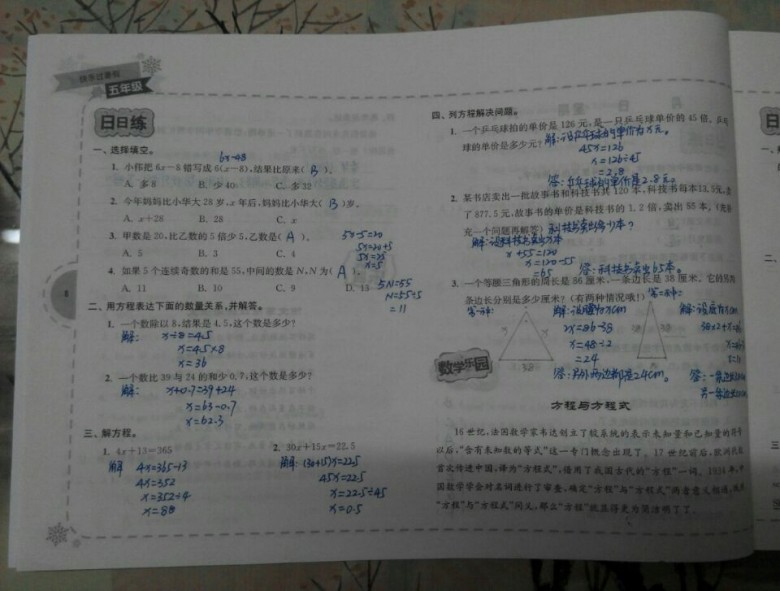 快乐过寒假
五年级
日日练
一、选择填空。
6x-48
1. 小伟把6x-8错写成6(x-8),结果比原来( B )。
A. 多8 B. 少40 C. 多32
2. 今年妈妈比小华大28岁,x年后,妈妈比小华大( B )岁。
A. x+28 B. 28 C. x
3. 甲数是20,比乙数的5倍少5,乙数是( A )。
A. 5 B. 3 C. 4
5x-5=20
5x=20+5
5x=25
x=5
4. 如果5个连续奇数的和是55,中间的数是N,N为( A )。
A. 11 B. 10 C. 9 D. 15
5N=55
N=55÷5
=11
二、用方程表达下面的数量关系,并解答。
1. 一个数除以8,结果是4.5,这个数是多少?
解: x÷8=4.5
x=4.5×8
x=36
2. 一个数比39与24的和少0.7,这个数是多少?
解: x+0.7=39+24
x=63-0.7
x=62.3
三、解方程。
1. 4x+13=365
解 4x=365-13
4x=352
x=352÷4
x=88
2. 30x+15x=22.5
解: (30+15)x=22.5
45x=22.5
x=22.5÷45
x=0.5
8
四、列方程解决问题。
1. 一个乒乓球拍的单价是126元,是一只乒乓球单价的45倍,乒乓
球的单价是多少元?
解:设乒乓球的单价为x元。
45x=126
x=126÷45
=2.8
答:乒乓球的单价是2.8元。
2. 某书店卖出一批故事书和科技书共120本,科技书每本13.5元,
了877.5元,故事书的单价是科技书的1.2倍,卖出55本,
充一个问题再解答)科技书卖出多少本?
x+55=120
x=120-55
=65
答:科技书卖出65本。
3. 一个等腰三角形的周长是86厘米,一条边长是38厘米,它的另
条边长分别是多少厘米?(有两种情况哦!)
第一种:
解:设腰为xcm
2x=86-38
x=48÷2
=24
答:另外两边都是24cm。
第二种:
解:设底为xcm
38×2+x=86
数学乐园
方程与方程式
16世纪,法国数学家韦达创立了较系统的表示未知量和已知量的符号
以后,“含有未知数的等式”这一专门概念出现了。17世纪前后,欧洲代数
首次传进中国,译为“方程式”,借用了我国古代的“方程”一词。1934年,中
国数学学会对名词进行了审查,确定“方程”与“方程式”两者意义相通,
“方程”与“方程式”同义,那么“方程”就显得更为简洁明了了。